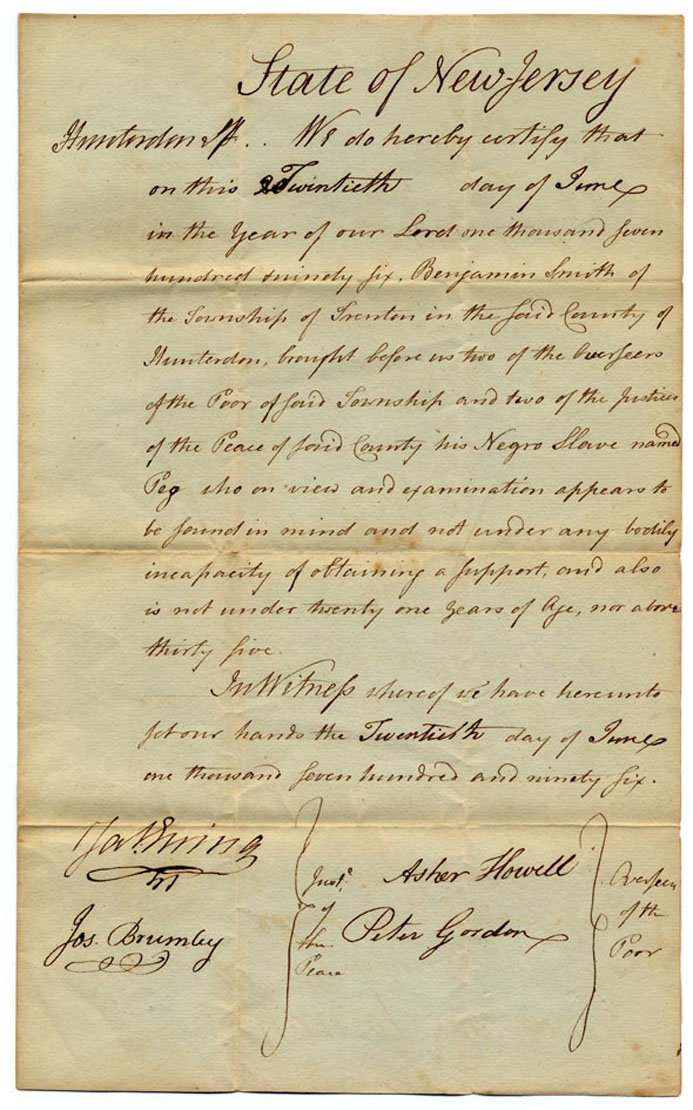 State of New-Jersey
Hunterdon ss. We do hereby certify that
on this Twentieth day of June
in the Year of our Lord one thousand seven
hundred & ninety six. Benjamin Smith of
the Township of Trenton in the said County of
Hunterdon, brought before us two of the Overseers
of the Poor of said Township and two of the Justices
of the Peace of said County his Negro Slave named
Peg who on view and examination appears to
be sound in mind and not under any bodily
incapacity of obtaining a support, and also
is not under twenty one Years of Age, nor above
thirty five.
In Witness whereof we have hereunto
set our hands the Twentieth day of June
one thousand seven hundred and ninety six.
Jas. Ewing
Jos. Brumley
Just.
of
the
Peace
Asher Howell
Peter Gordon
Overseers
of the
Poor